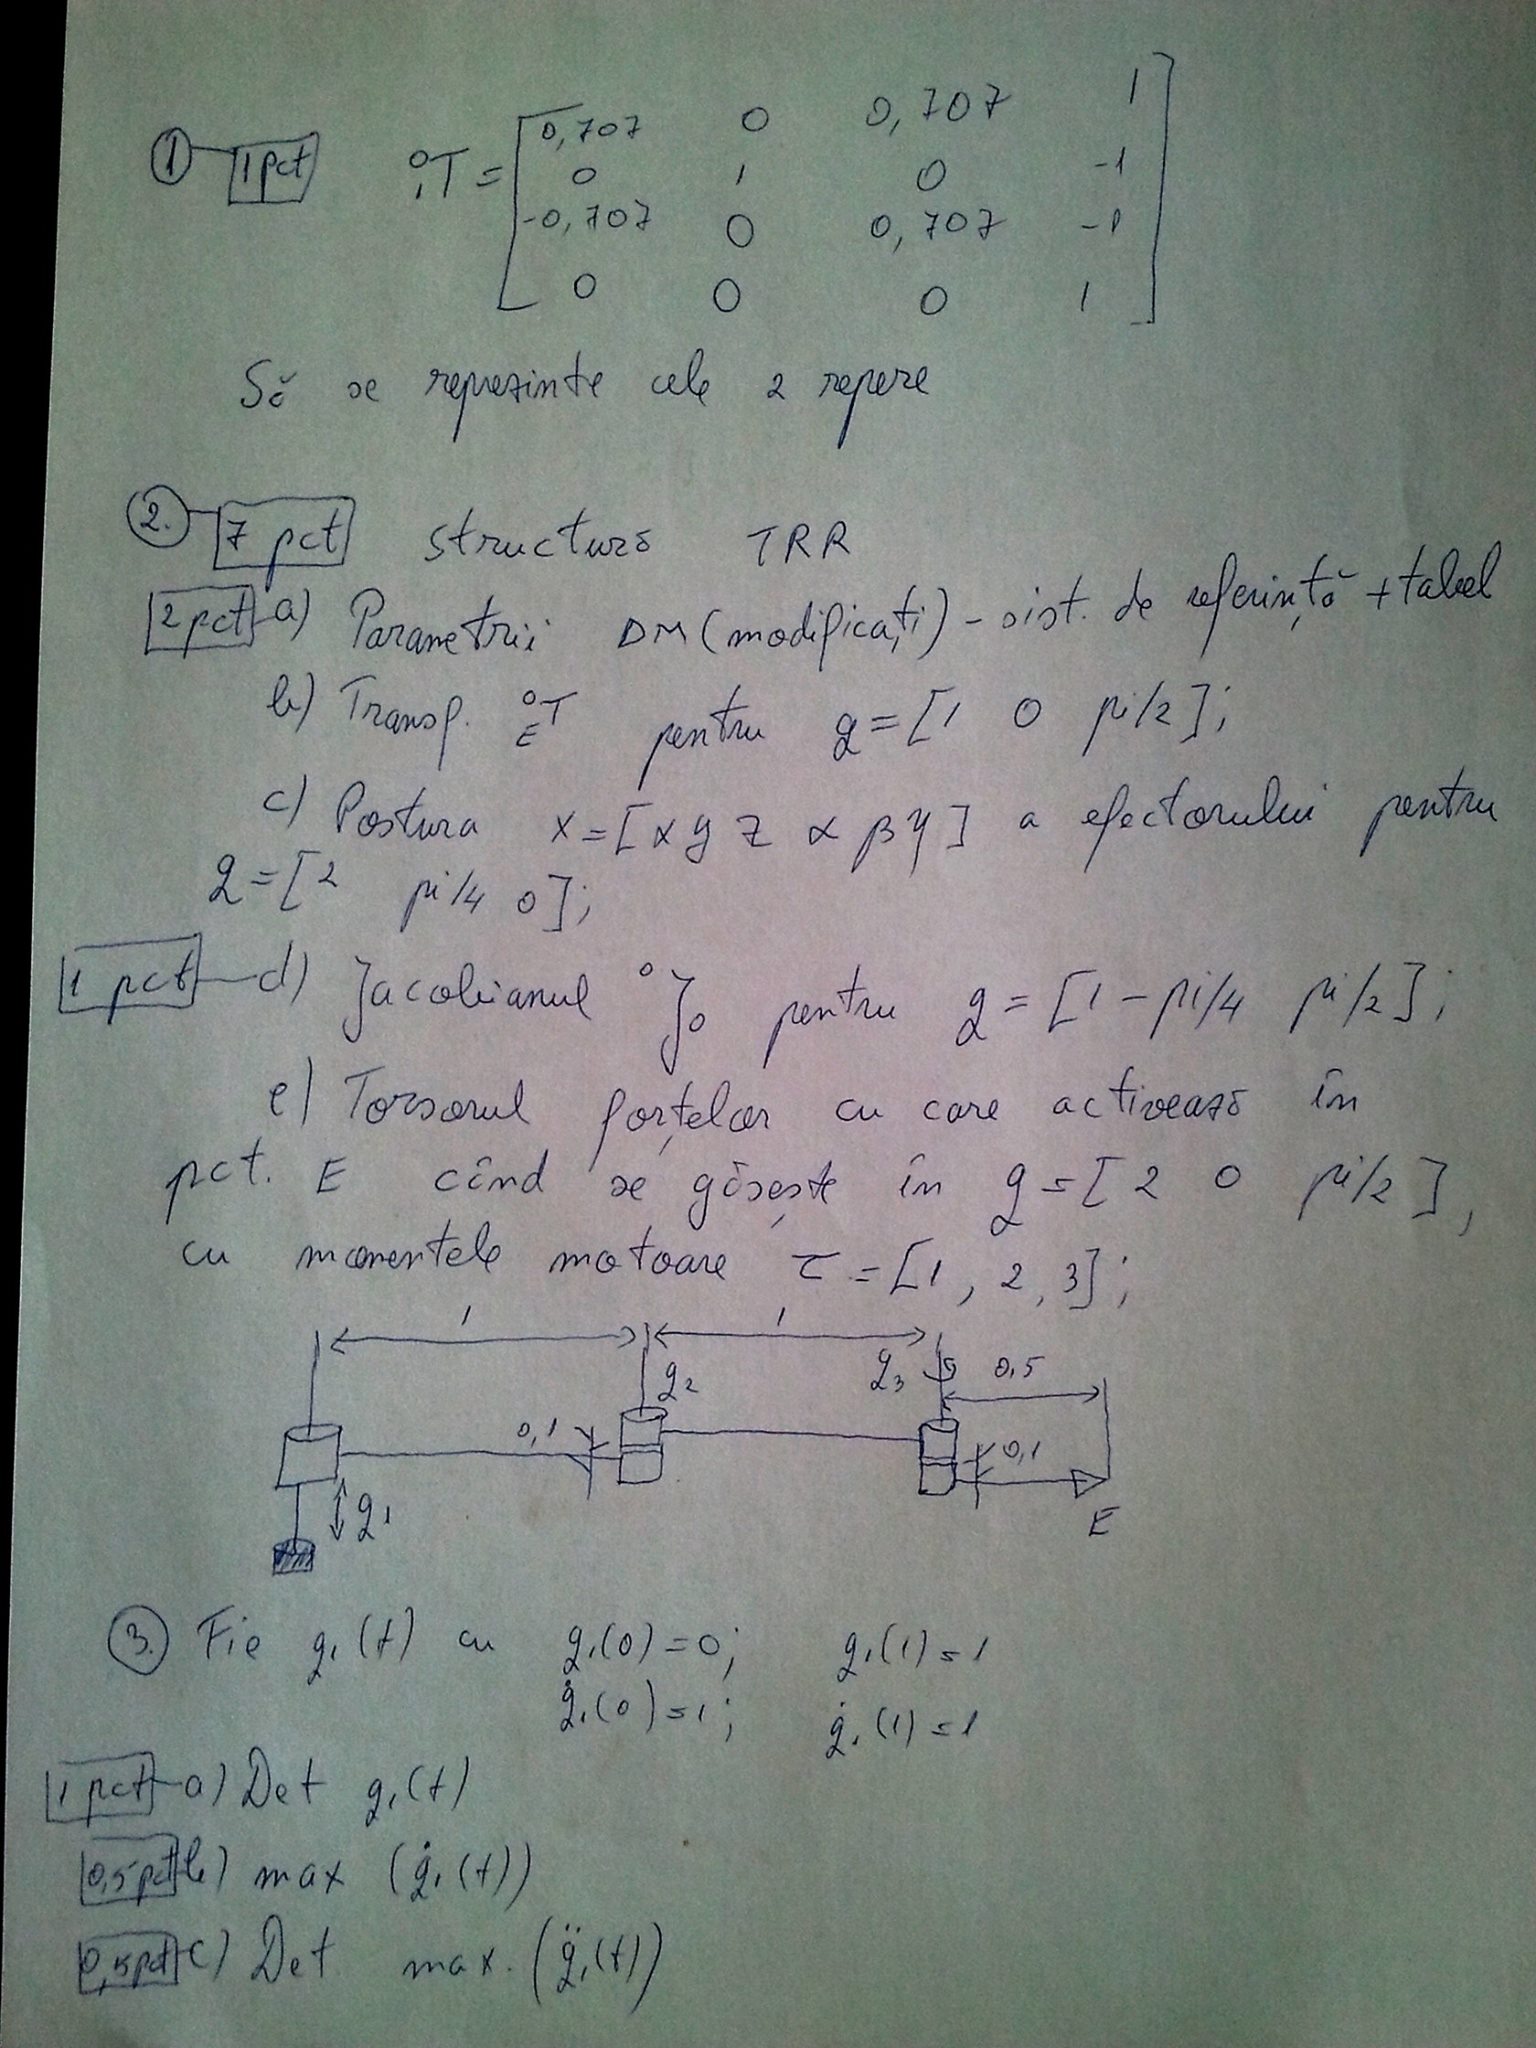 ① 1pct ⁰₁T = [ 0,707 0 0,707 1
0 1 0 -1
-0,707 0 0,707 -1
0 0 0 1 ]
Să se reprezinte cele 2 repere
2. 7 pct structură TRR
2 pct a) Parametrii DM (modificați) - sist. de referință + tabel
b) Transf. ⁰ᴇT pentru q = [1 0 pi/2];
c) Postura X = [x y z α β γ] a efectorului pentru
q = [2 pi/4 0];
1 pct d) Jacobianul ⁰J₀ pentru q = [1 -pi/4 pi/2];
e) Torsorul forțelor cu care activează în
pct. E când se găsește în q = [2 0 pi/2],
cu momentele motoare τ = [1, 2, 3];
1 1
q₂ q₃ 0,5
0,1 0,1
q₁ E
3. Fie q₁(t) cu q₁(0) = 0; q₁(1) = 1
q̇₁(0) = 1; q̇₁(1) = 1
1 pct a) Det q₁(t)
0,5pct b) max (q̇₁(t))
0,5pct c) Det max. (q̈₁(t))